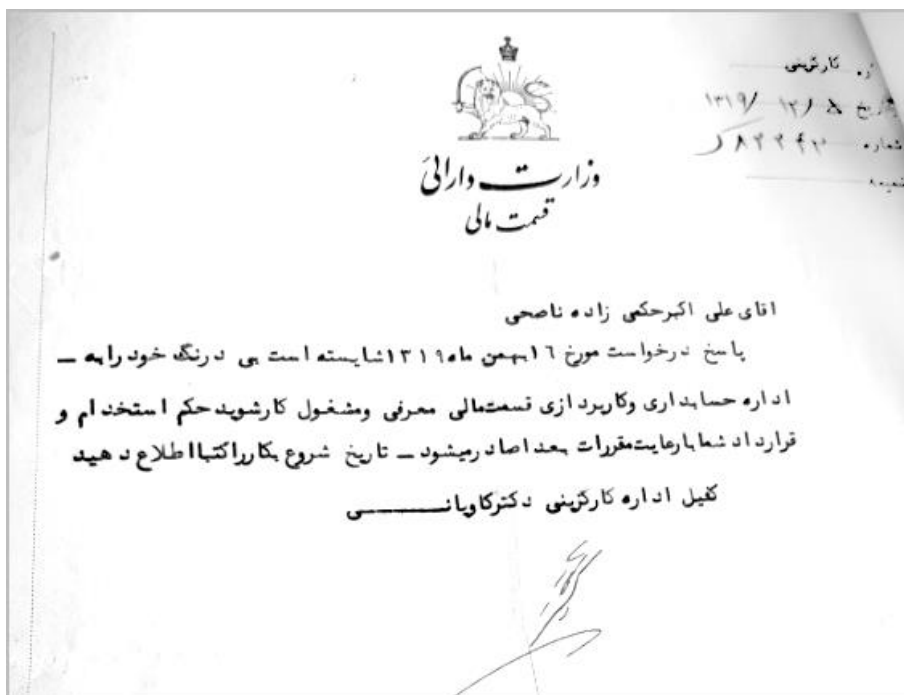 کارگزینی
تاریخ ۱۳۱۹/ ۱۲/ ۸
شماره
ضمیمه
وزارت دارائی
قسمت مالی
اقای علی اکبرحکمی زاده ناصحی
پاسخ درخواست مورخ ۱۶بهمن ماه۱۳۱۹شایسته است بی درنگ خود رابه –
اداره حسابداری وکارپردازی قسمت‌مالی معرفی ومشغول کارشوید حکم استخدام و
قرارداد شمابارعایت‌مقررات بعداصادرمیشود – تاریخ شروع بکارراکتبااطلاع دهید
کفیل اداره کارگزینی دکترکاویانی